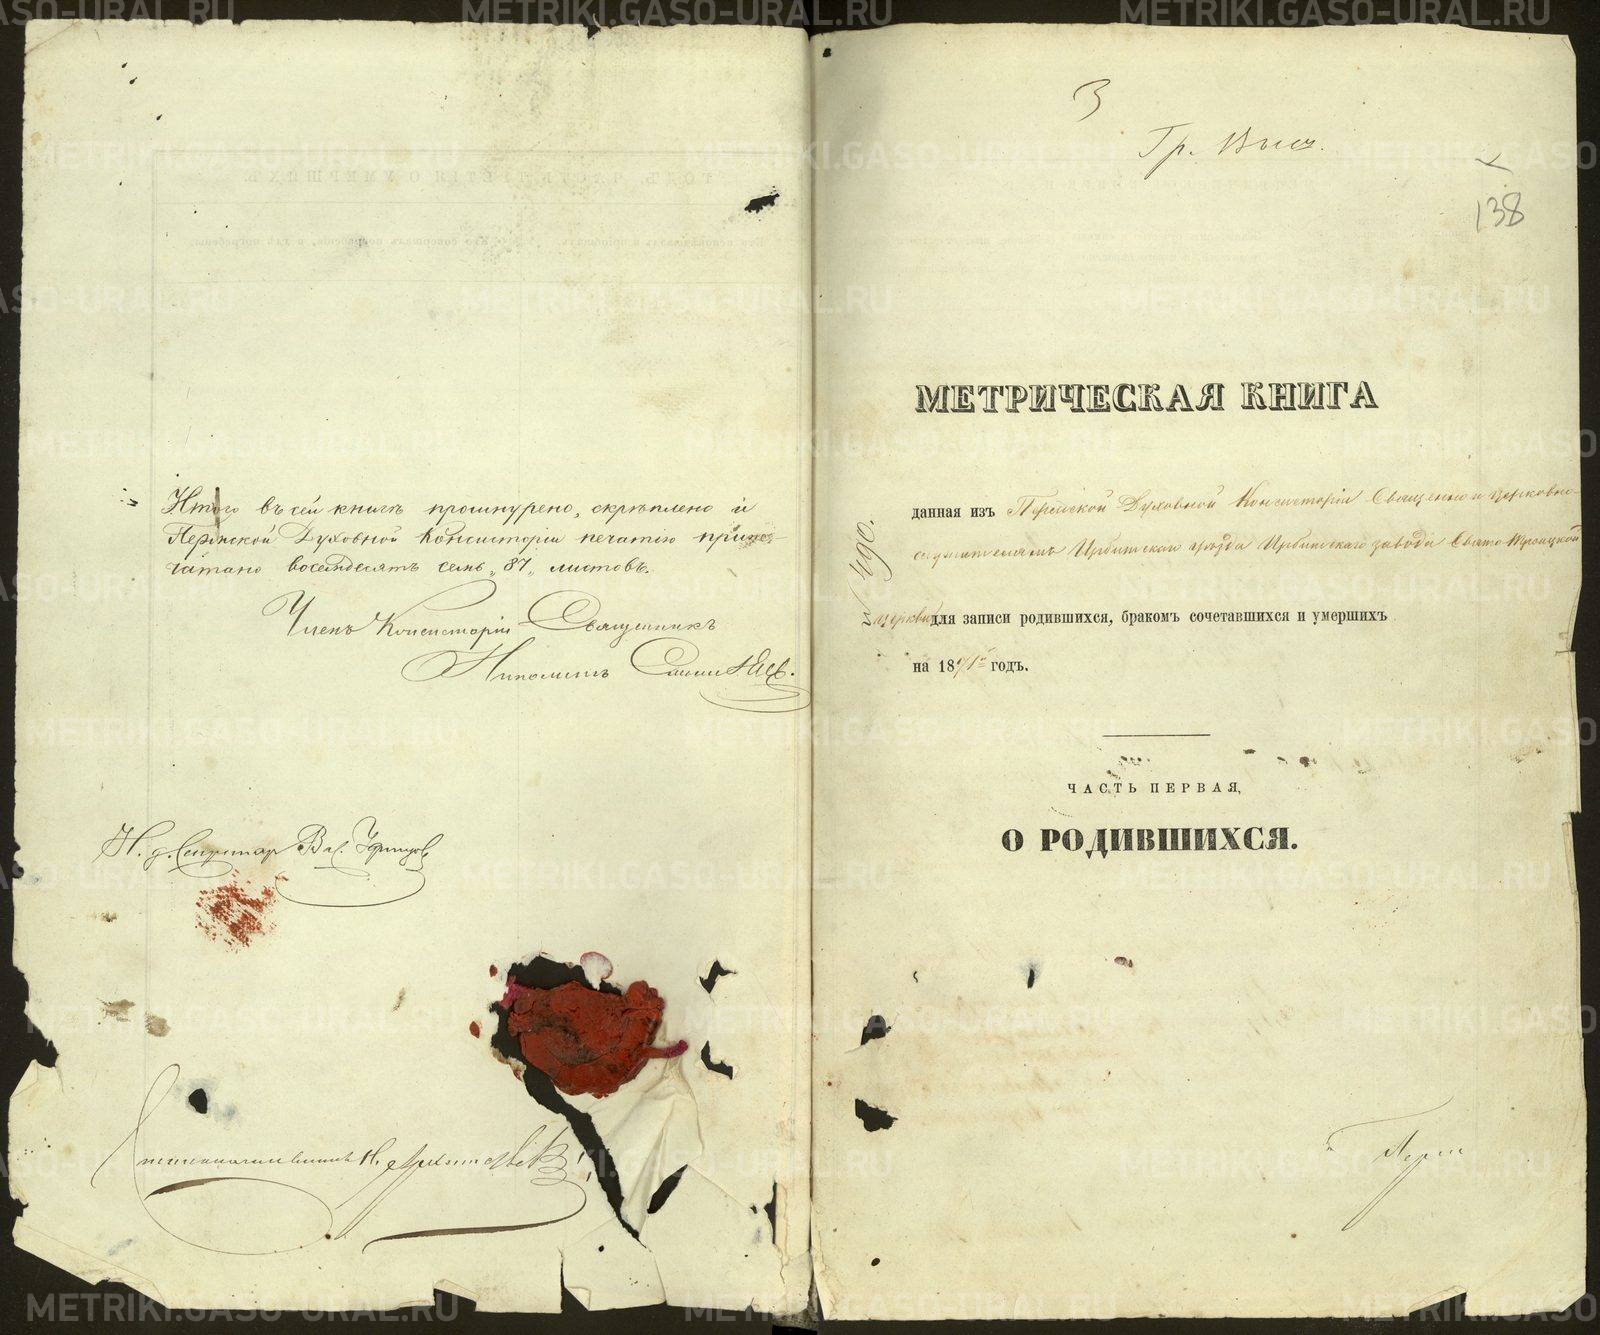 Итого въ сей книгѣ прошнурено, скрѣплено и
Пермской Духовной Консисторіи печатію припе-
чатано восемдесятъ семь „87„ листовъ.
Членъ Консисторіи Священникъ
Ипполитъ
И. д. Секретар
3
138
МЕТРИЧЕСКАЯ КНИГА
данная изъ Пермской Духовной Консисторіи Священно и церковно-
служителямъ Ирбитскаго уѣзда Ирбитскаго завода Свято Троицкой
церкви для записи родившихся, бракомъ сочетавшихся и умершихъ
на 1871й годъ.
№ 490.
ЧАСТЬ ПЕРВАЯ,
О РОДИВШИХСЯ.
METRIKI.GASO-URAL.RU